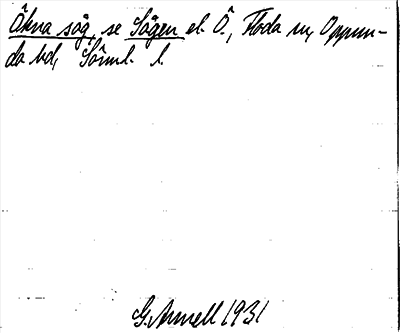 Åkna såg, se Sågen el. Ö., Floda sn, Oppun-
da hd, Södml. l.
G. Armell 1931